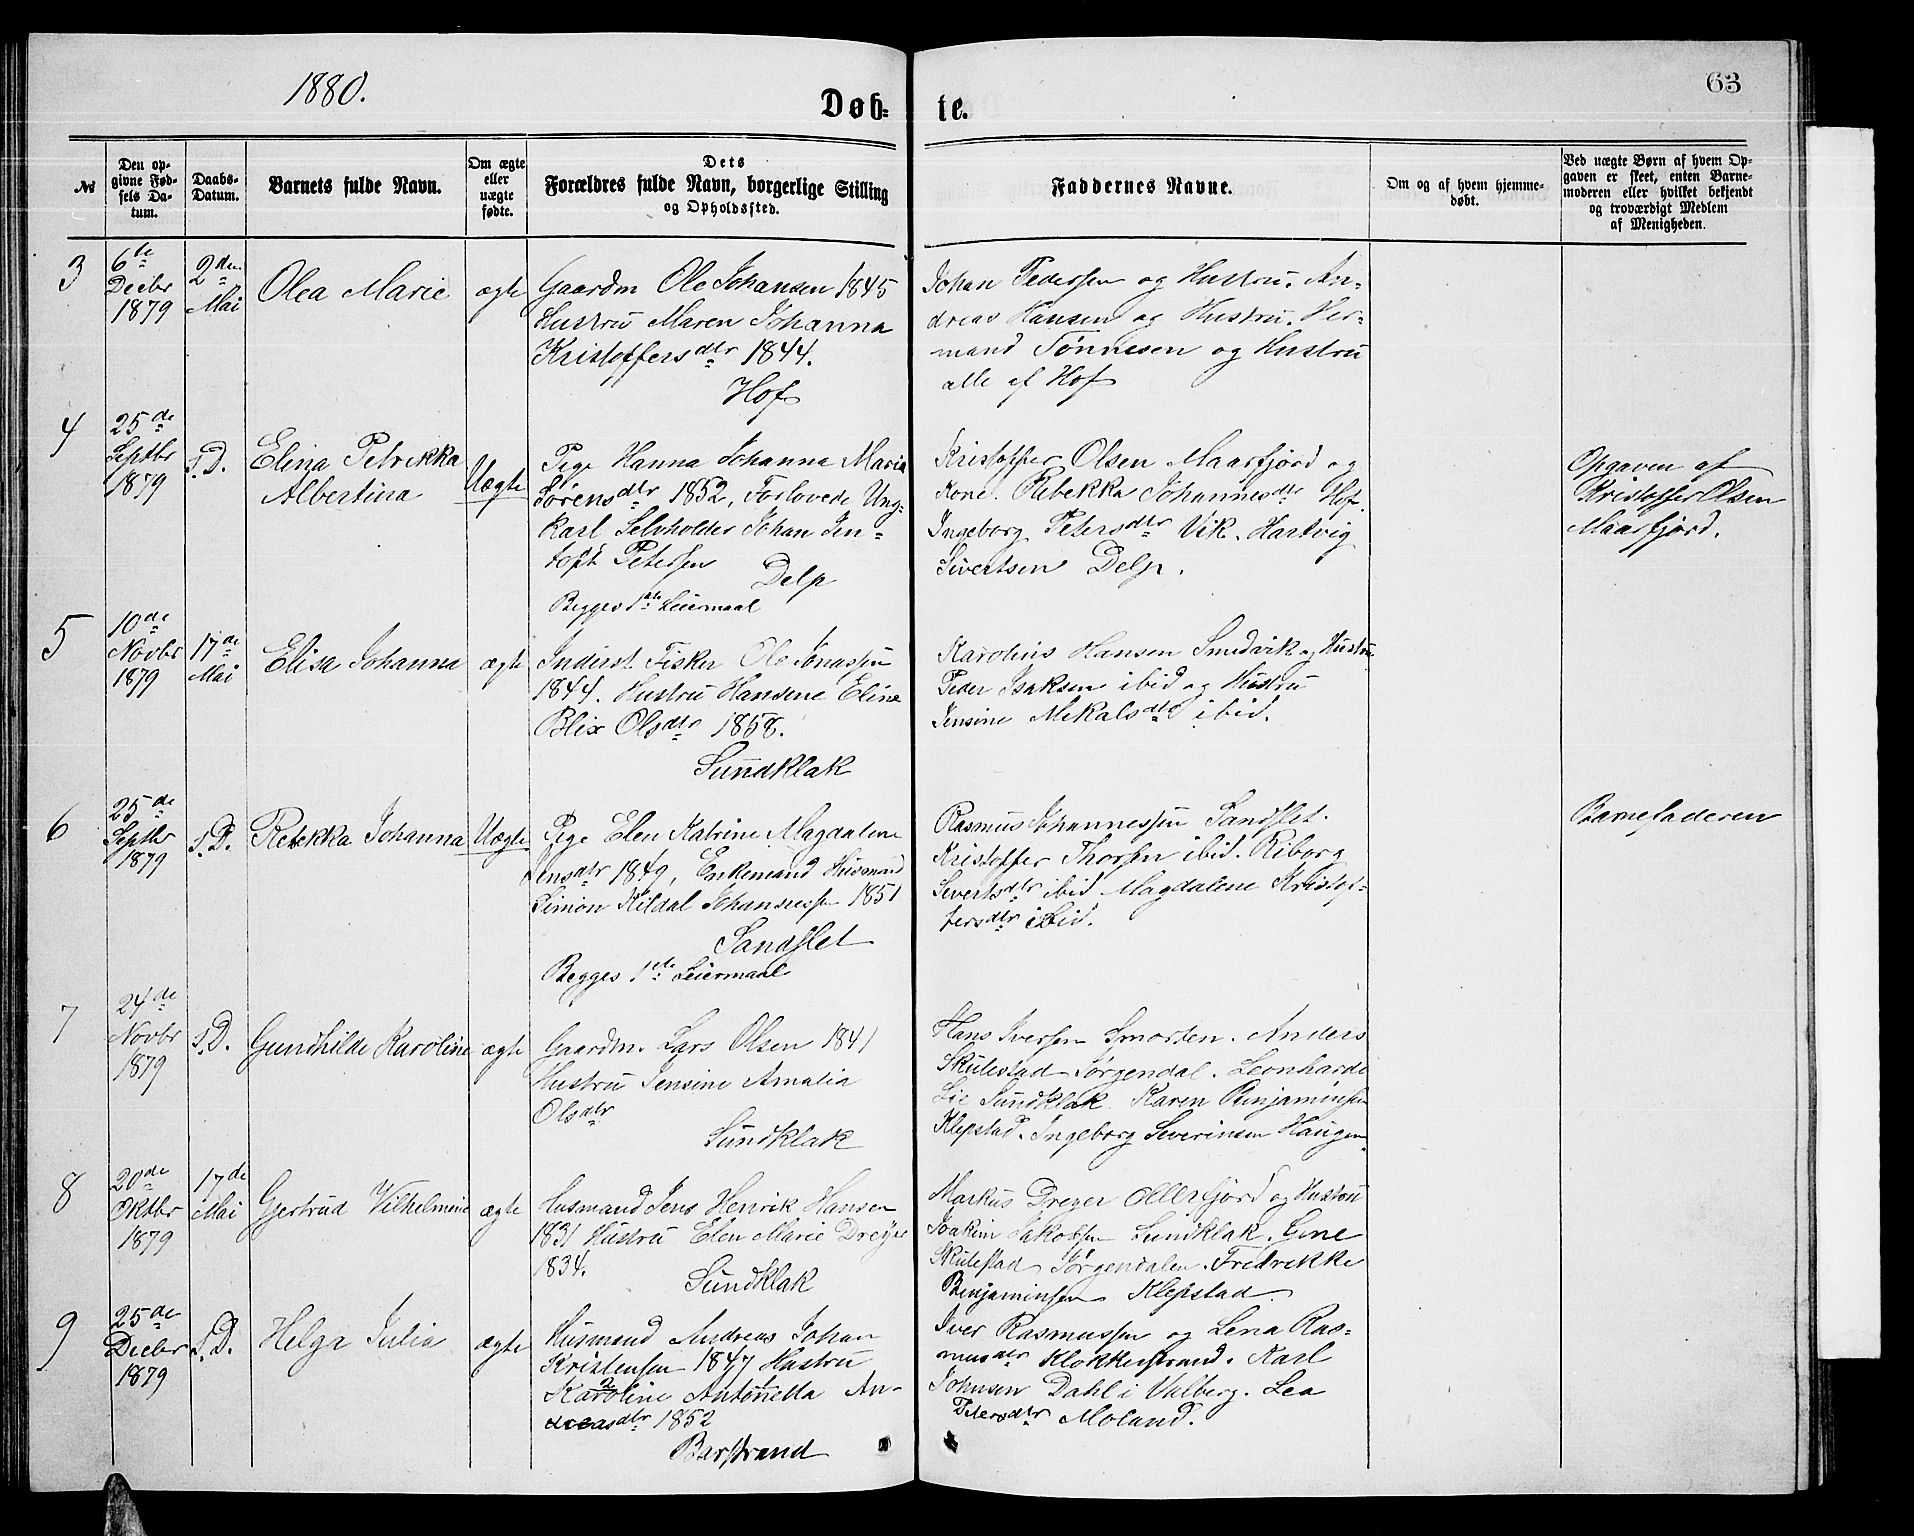 1880.
Døb-
te.
63
No
Den op-
givne Fød-
sels Da-
tum.
Daabs-
Datum.
Barnets fulde Navn.
Om ægte
eller
uægte
fødte.
Dets
Forældres fulde Navn, borgerlige Stilling
og Opholdssted.
Faddernes Navne.
Om og af hvem hjemme-
døbt.
Ved uægte Børn af hvem Op-
gaven er skeet, enten Barne-
moderen eller hvilket bekjendt
og troværdigt Medlem
af Menigheden.
3
6te
Decbr
1879
2den
Mai
Olea Marie
ægte
Gaardm Ole Johansen 1845
Hustru Maren Johanna
Kristoffersdtr 1844.
Hof
Johan Pedersen og Hustru. An-
dreas Hansen og Hustru. Her-
mand Tønnesen og Hustru
alle af Hof
4
25de
Septbr
1879
s.D.
Elina Petrikka
Albertina
Uægte
Pige Hanna Johanna Maria
Sørensdtr 1852, Forlovede Ung-
karl Selvholder Johan Jen-
toft Petersen
Delp
Begges 1ste Leiermaal
Kristoffer Olsen Maarfjord og
Kone. Rebekka Johannesdtr Hof.
Ingeborg Petersdtr Vik. Hartvig
Sivertsen Delp.
Opgaven af
Kristoffer Olsen
Maarfjord.
5
10de
Novbr
1879
17de
Mai
Elisa Johanna
ægte
Inderst Fisker Ole Jonassen
1844. Hustru Hansene Elina
Blix Olsdtr 1858.
Sundklak
Karolius Hansen Smedvik og Hustru
Peder Isaksen ibid og Hustru
Jensine Mikalsdtr ibid.
6
25de
Septbr
1879
s.D.
Rebekka Johanna
Uægte
Pige Elen Katrine Magdalena
Jensdtr 1849, Enkemand Huusmand
Simon Kildal Johannessen 1851
Sandslet
Begges 1ste Leiermaal
Rasmus Johannessen Sandslet.
Kristoffer Thorsen ibid. Riborg
Sivertsdtr ibid Magdalene Kristof-
fersdtr ibid.
Barnefaderen
7
24de
Novbr
1879
s.D.
Gundhilde Karoline
ægte
Gaardm. Lars Olsen 1841
Hustru Jensine Amalia
Olsdtr
Sundklak
Hans Iversen Smorten. Anders
Skulestad Sørgendal. Leonharde
Lie Sundklak. Karen Benjaminsen
Klepstad. Ingeborg Severinsen Haugen
8
20de
Oktbr
1879
17de
Mai
Gjertrud Vilhelmine
ægte
Husmand Jens Henrik Hansen
1831 Hustru Elen Marie Dreyer
1834.
Sundklak
Markus Dreyer Ollerfjord og Hustru
Joakim Jakobsen Sundklak. Gine
Skulestad Sørgendalen. Fredrikke
Benjaminsen Klepstad
9
25de
Decbr
1879
s.D.
Helga Julia
ægte
Husmand Andreas Johan
Kristensen 1847 Hustru
Karoline Antonetta An-
dreasdtr 1852
Barstrand
Iver Rasmussen og Lena Ras-
musdtr Klokkerstrand. Karl
Johnsen Dahl i Valberg. Lea
Petersdtr Moland.